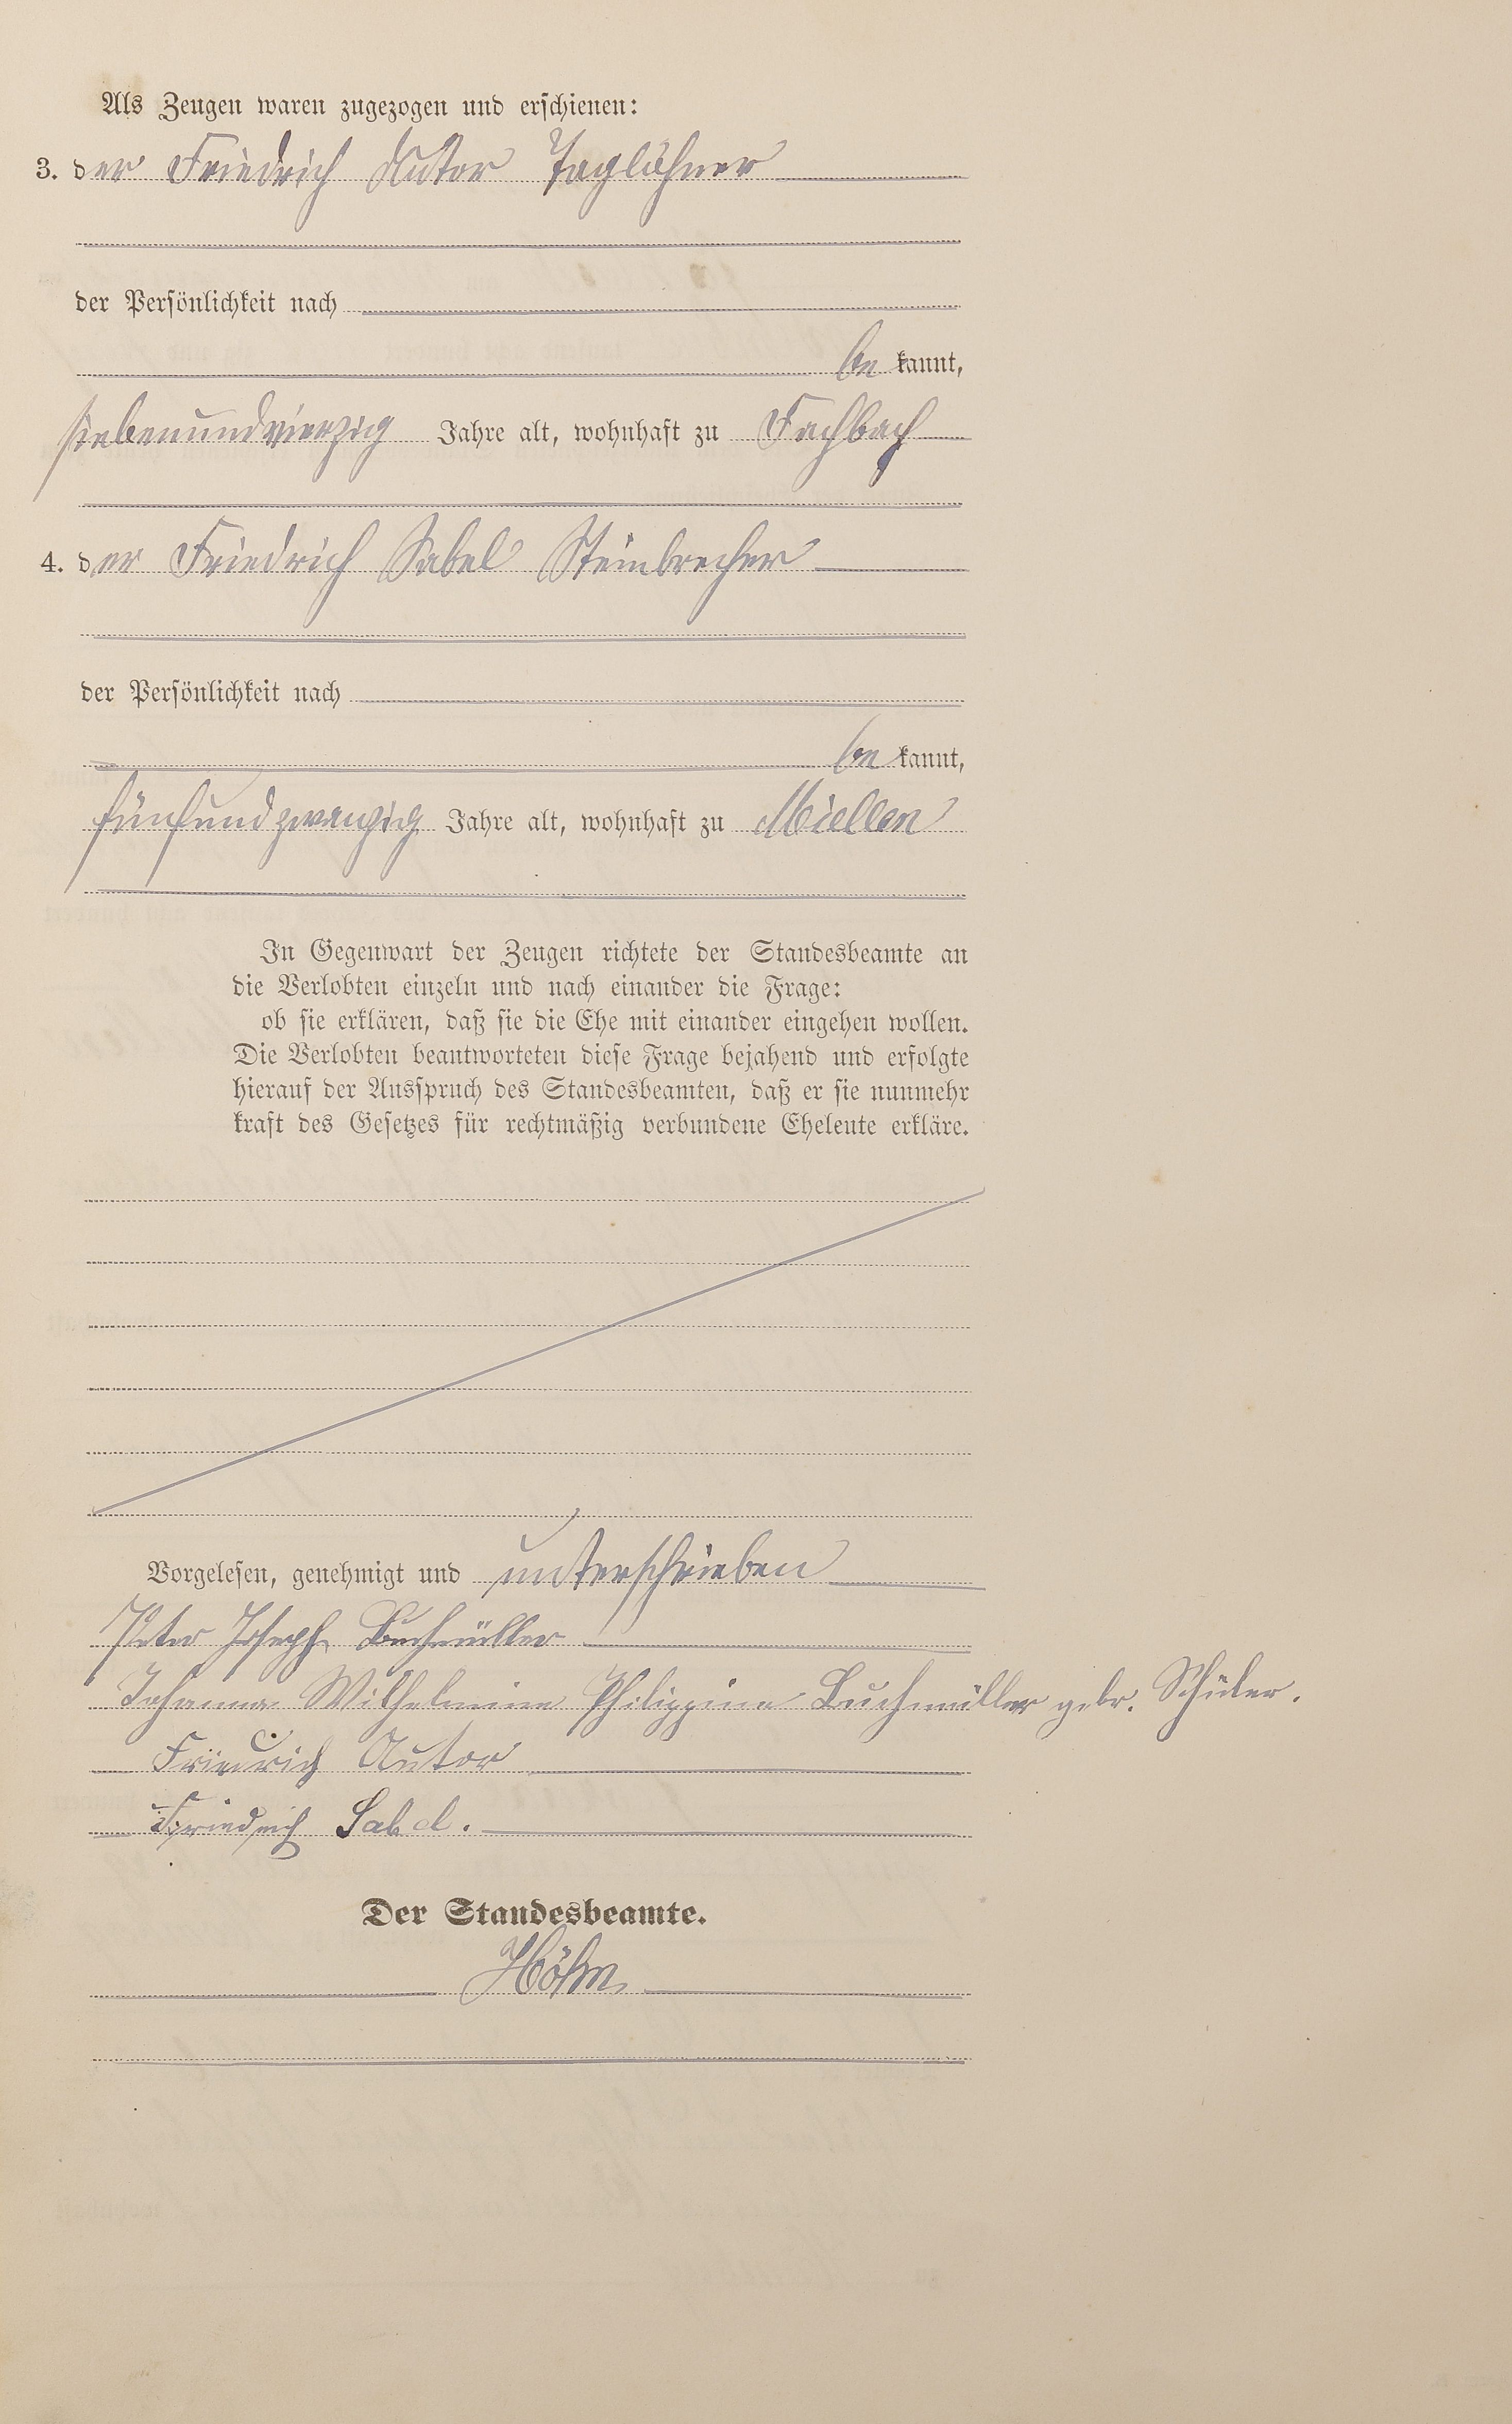 Als Zeugen waren zugezogen und erschienen:
3. der Friedrich Autor Taglöhner
der Persönlichkeit nach
be kannt,
siebenundvierzig Jahre alt, wohnhaft zu Fachbach
4. der Friedrich Sabel Steinbrecher
der Persönlichkeit nach
be kannt,
fünfundzwanzig Jahre alt, wohnhaft zu Miellen
In Gegenwart der Zeugen richtete der Standesbeamte an
die Verlobten einzeln und nach einander die Frage:
ob sie erklären, daß sie die Ehe mit einander eingehen wollen.
Die Verlobten beantworteten diese Frage bejahend und erfolgte
hierauf der Ausspruch des Standesbeamten, daß er sie nunmehr
kraft des Gesetzes für rechtmäßig verbundene Eheleute erkläre.
Vorgelesen, genehmigt und unterschrieben
Peter Joseph Buchmüller
Johanna Wilhelmine Philippina Buchmüller gebr. Schüler.
Friedrich Autor
Friedrich Sabel.
Der Standesbeamte.
Höhn